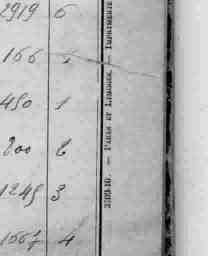 2919 6
166 1
450 1
200 6
1249 3
1667 4
— PARIS ET LIMOGES. — IMPRIMERIE